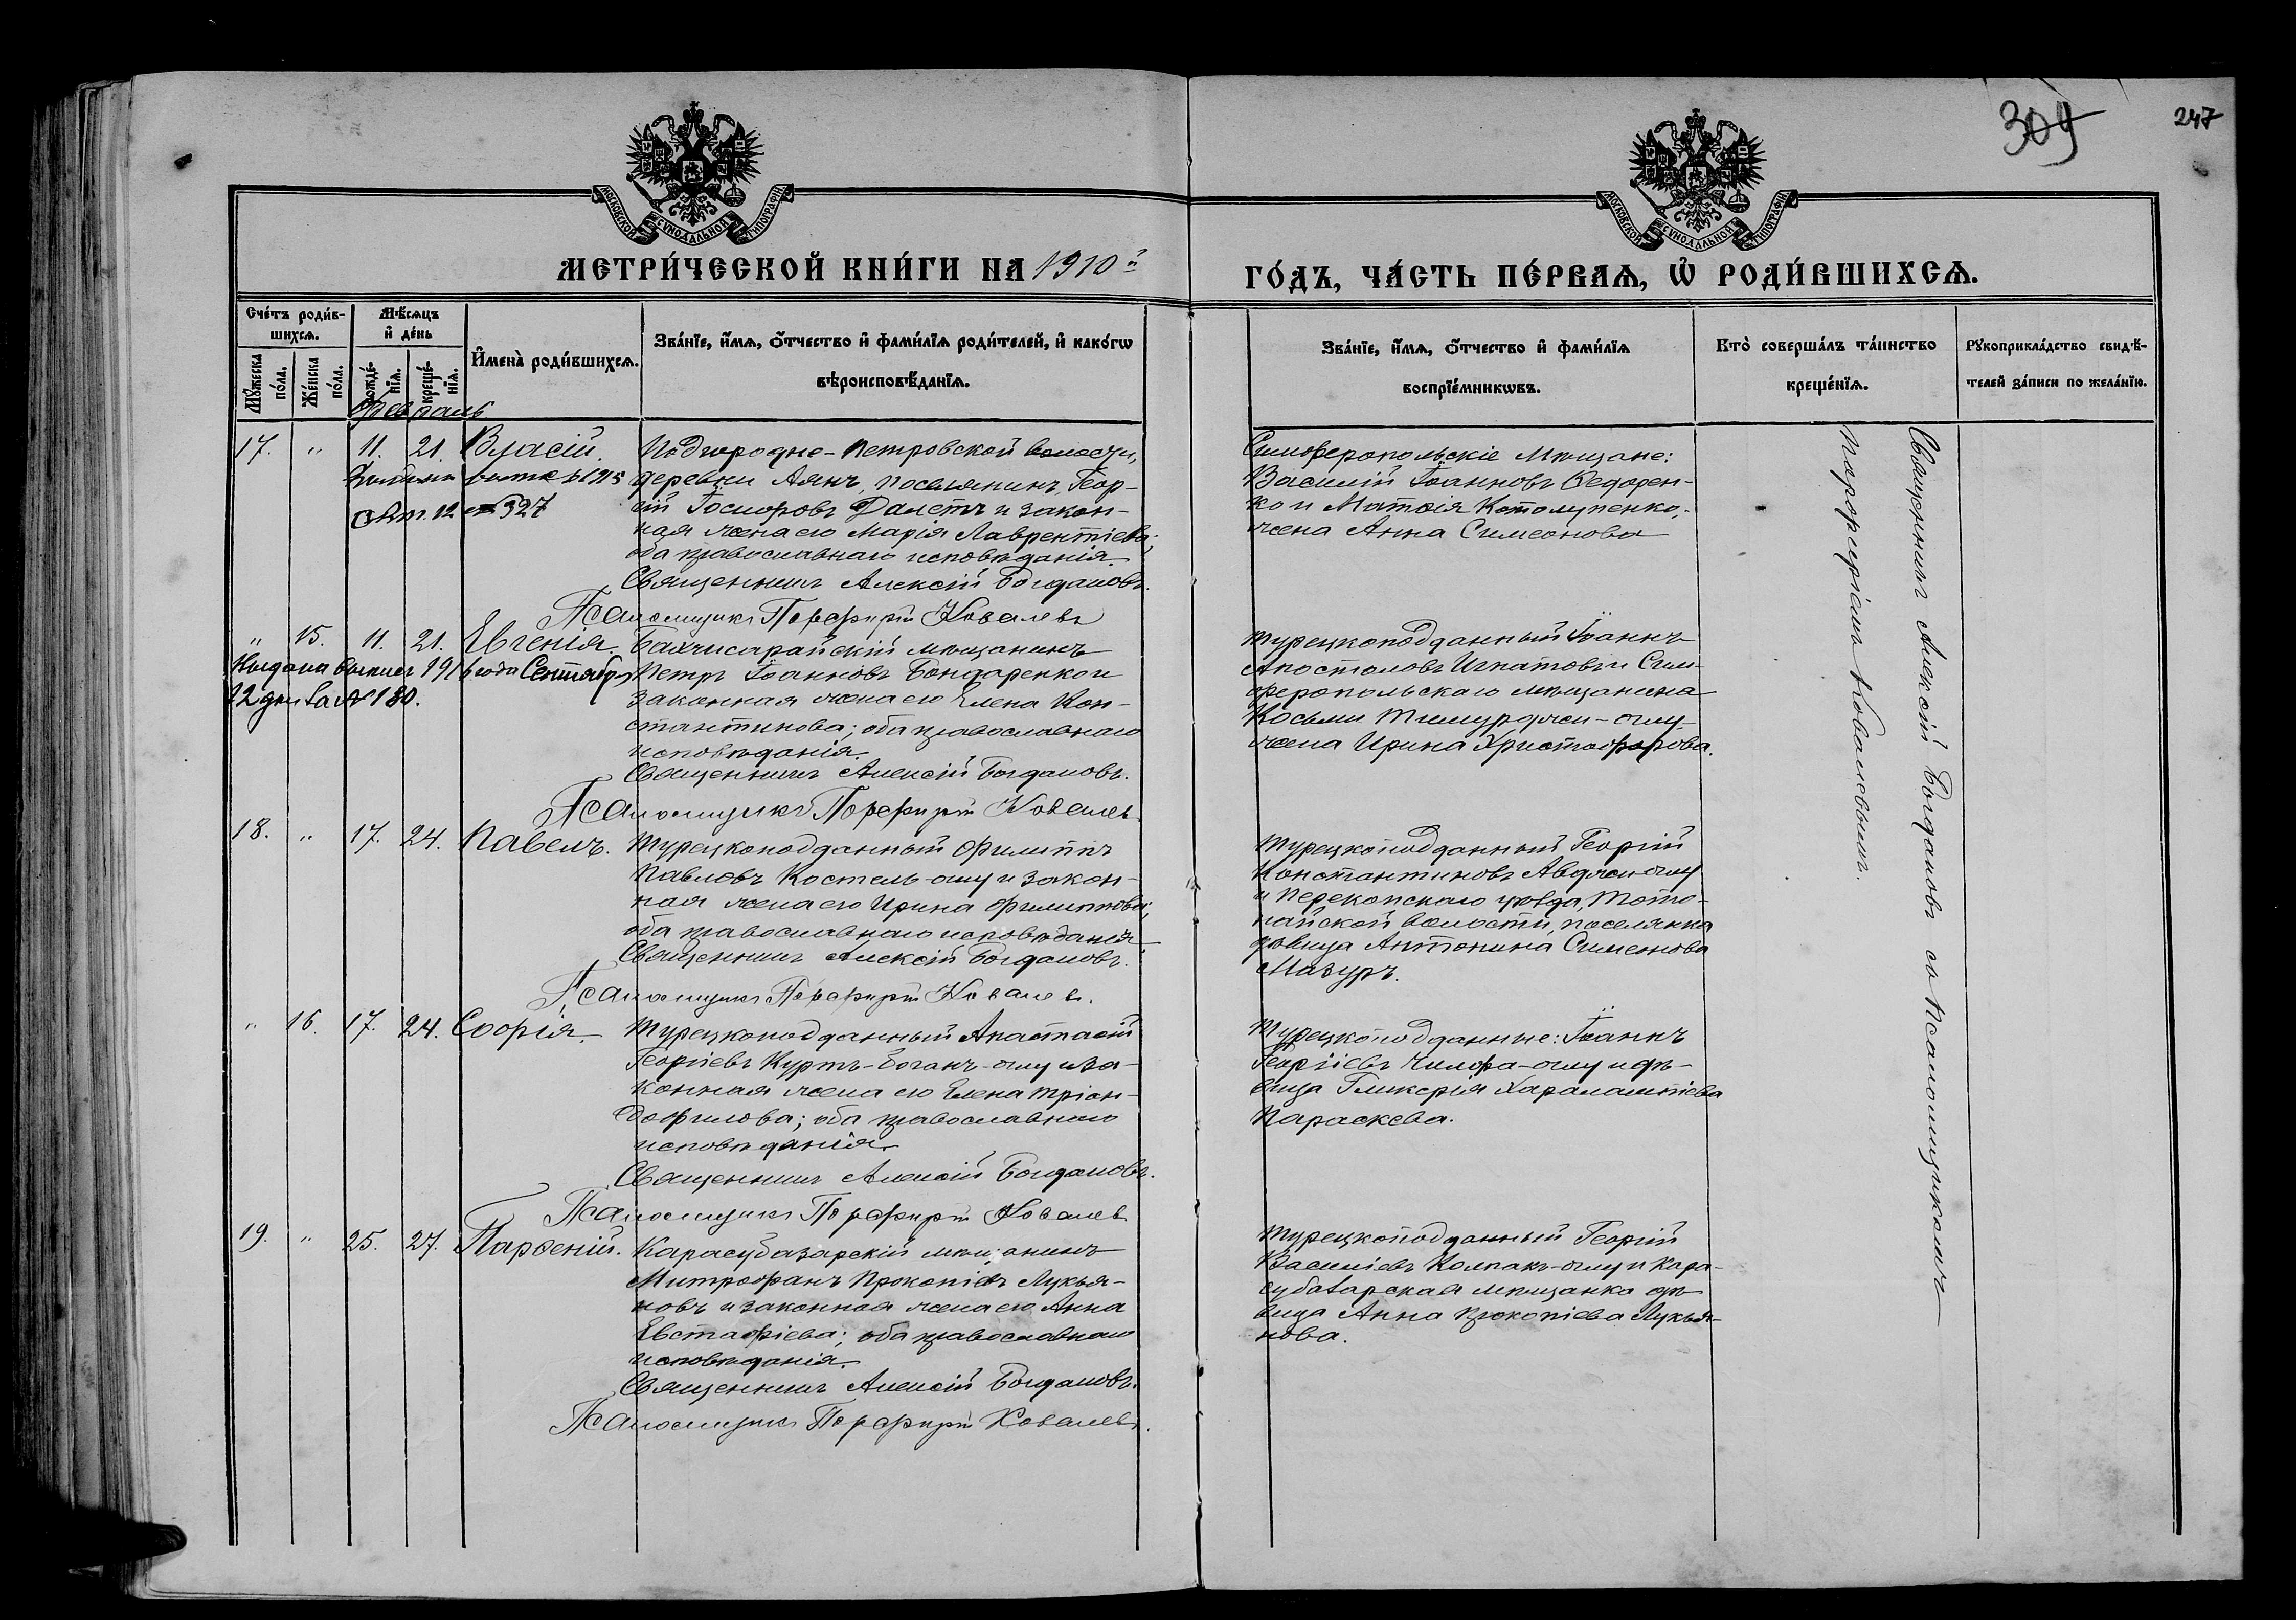 309
247
МОСКОВСКОЙ СѴНОДАЛЬНОЙ ТИПОГРАФІИ
МОСКОВСКОЙ СѴНОДАЛЬНОЙ ТИПОГРАФІИ
МЕТРИ́ЧЕСКОЙ КНИ́ГИ НА 1910й
ГО́ДЪ, ЧА́СТЬ ПЕ́РВАѦ, Ѡ҆ РОДИ́ВШИХСѦ.
Сче́тъ роди́в-
шихсѧ.
Мѣ́сѧцъ
и҆ де́нь
Мꙋ́жеска по́ла.
Же́нска по́ла.
рожде́-нїѧ.
креще́-нїѧ.
И҆мена̀ роди́вшихсѧ.
Зва́нїе, и҆́мѧ, ѻ҆́тчество и҆ фами́лїѧ роди́телей, и҆ како́гѡ
вѣроисповѣ́данїѧ.
Зва́нїе, и҆́мѧ, ѻ҆́тчество и҆ фами́лїѧ
воспрїе́мникѡвъ.
Кто̀ соверша́лъ та́инство
креще́нїѧ.
Рꙋкоприкла́дство свидѣ́-
телей за́писи по жела́нїю.
Февраль
17. „ 11. 21. Власій. Подгородне-Петровской волости,
деревки Аянъ, поселянинъ, Геор-
окт. 12 № 327
ная жена его Марія Лаврентіева;
оба православнаго исповѣданія.
Священникъ Алексій Богдановъ.
Псаломщикъ Порфирій Ковалевъ
Симферопольскіе мѣщане:
Василій Іоанновъ Федорен-
ко и
жена Анна Симеонова
„ 15. 11. 21. Евгенія. Бахчисарайскій мѣщанинъ
Выдана выпись 1916 года Сентября Петръ Іоанновъ Бондаренко и
22 дня за № 180. законная жена его Елена Кон-
стантинова; оба православнаго
исповѣданія.
Священникъ Алексій Богдановъ.
Псаломщикъ Порфирій Ковалевъ
Турецкоподданный Іоаннъ
Апостоловъ Игнатовъ и Сим-
феропольскаго мѣщанина
Косьмы Тимурджи-оглу
жена Ирина Христофорова.
18. „ 17. 24. Павелъ. Турецкоподданный Филиппъ
Павловъ Костель-оглу и закон-
ная жена его Ирина Филиппова;
оба православнаго исповѣданія.
Священникъ Алексій Богдановъ.
Псаломщикъ Порфирій Ковалевъ.
Турецкоподданный Георгій
Константиновъ Авджи-оглу
и Перекопскаго уѣзда, Тото-
найской волости, поселянка
дѣвица Антонина Симеонова
Мазуръ.
„ 16. 17. 24. Софія. Турецкоподданный Анастасій
Георгіевъ Куртъ-Боганъ-оглу и за-
конная жена его Елена Тріан-
дофилова; оба православнаго
исповѣданія.
Священникъ Алексій Богдановъ.
Псаломщикъ Порфирій Ковалевъ
Турецкоподданные: Іоаннъ
Георгіевъ Чилфа-оглу и дѣ-
вица Гликерія Харалампіева
Параскева.
19. „ 25. 27. Парѳеній. Карасубазарскій мѣщанинъ
Митрофанъ Прокопіевъ Лукья-
новъ и законная жена его Анна
Евстафіева; оба православнаго
исповѣданія.
Священникъ Алексій Богдановъ.
Псаломщикъ Порфирій Ковалевъ.
Турецкоподданный Георгій
Василіевъ Колпакъ-оглу и Кара-
субазарская мѣщанка дѣ-
вица Анна Прокопіева Лукья-
нова.
Священникъ Алексій Богдановъ съ Псаломщикомъ
Порфиріемъ Ковалевымъ.